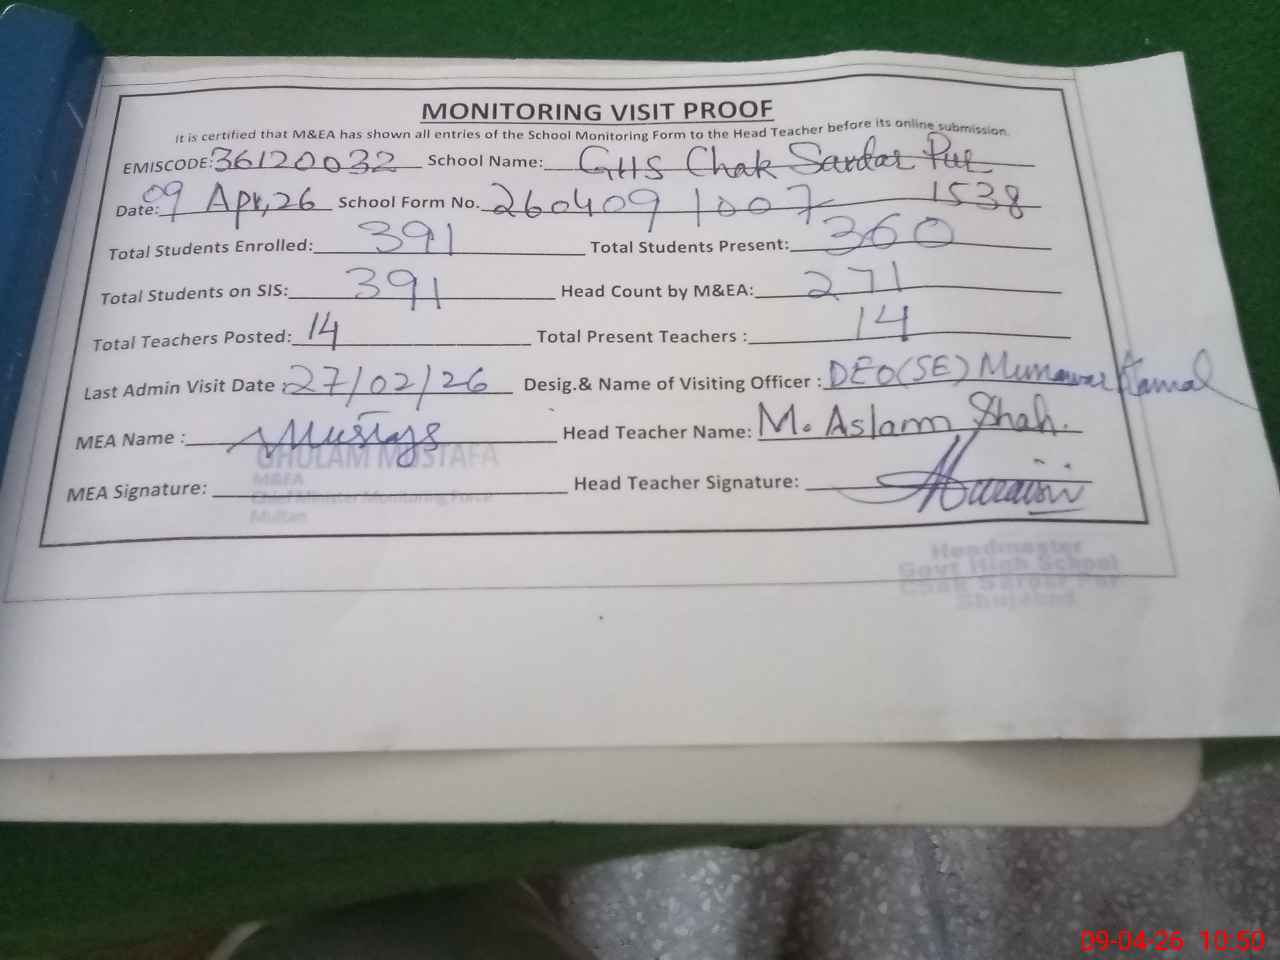 MONITORING VISIT PROOF
It is certified that M&EA has shown all entries of the School Monitoring Form to the Head Teacher before its online submission.
EMISCODE: 36120032 School Name: GHS Chak Sardar Pur
Date: 09 Apr, 26 School Form No. 260409 1007 1538
Total Students Enrolled: 391 Total Students Present: 360
Total Students on SIS: 391 Head Count by M&EA: 271
Total Teachers Posted: 14 Total Present Teachers : 14
Last Admin Visit Date : 27/02/26 Desig.& Name of Visiting Officer : DEO(SE) Munawar Kamal
MEA Name : Head Teacher Name: M. Aslam Shah.
GHULAM MUSTAFA
M&EA
MEA Signature: Head Teacher Signature:
Chief Minister Monitoring Force
Multan
Headmaster
Govt High School
Chak Sardar Pur
Shujabad
09-04-26 10:50